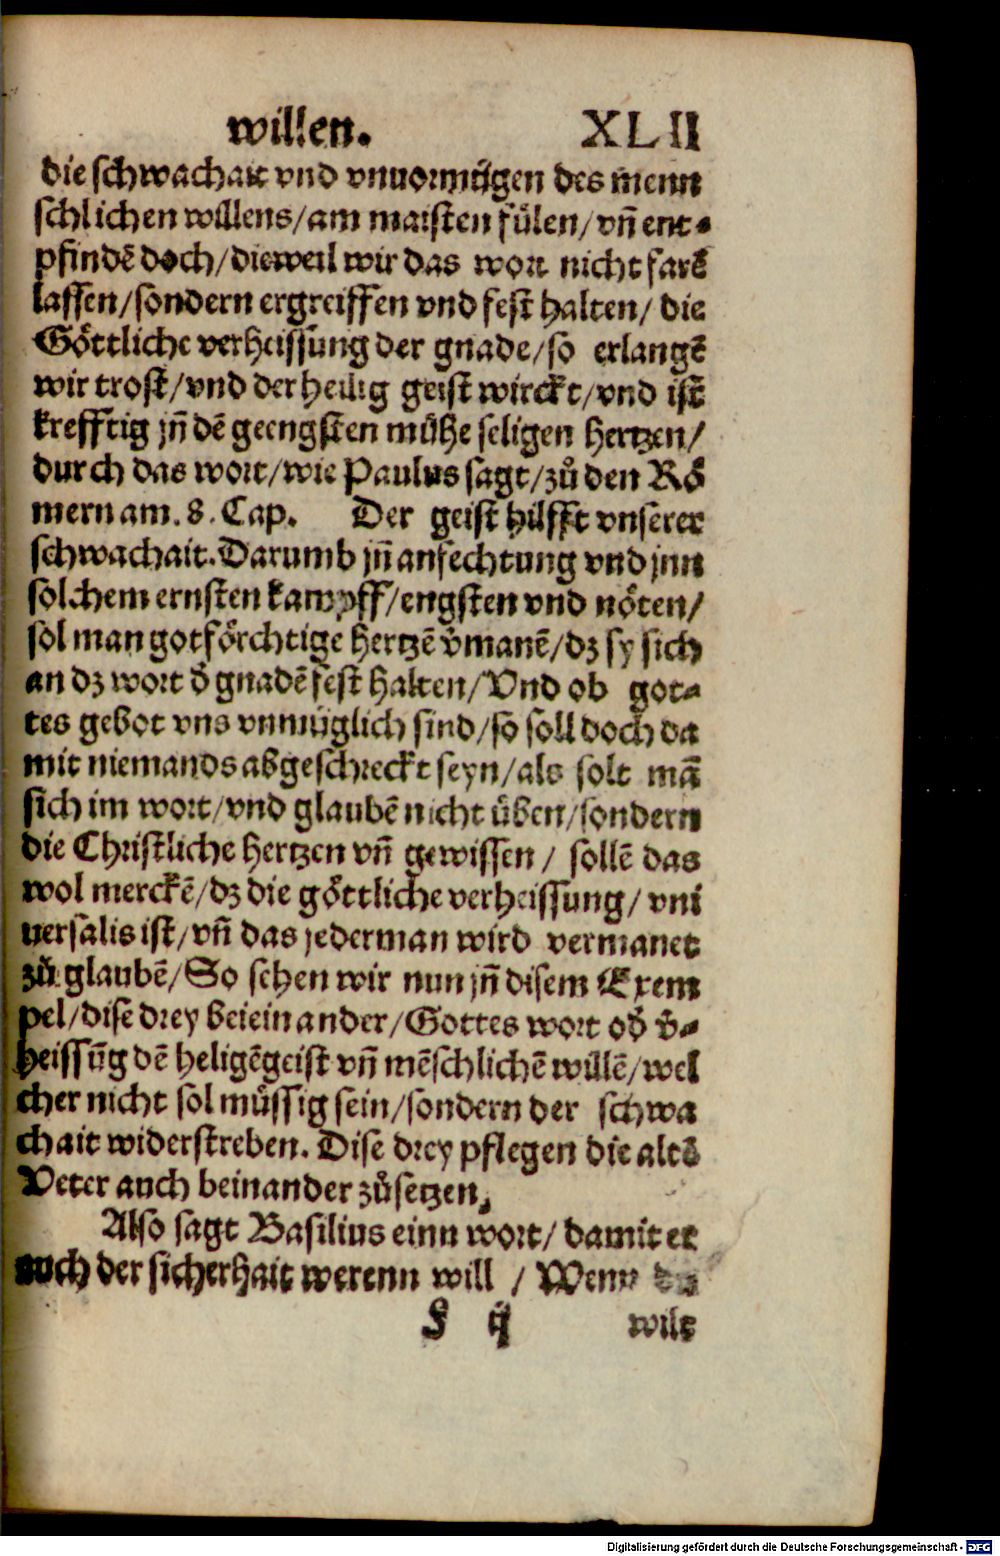 willen. XLII
die schwachait vnd vnuormügen des menn
schlichen willens/am maisten fülen/vñ ent⸗
pfindẽ doch/dieweil wir das wort nicht farẽ
lassen/sondern ergreiffen vnd fest halten/ die
Göttliche verheissung der gnade/so erlangẽ
wir trost/vnd der heilig geist wirckt/vnd ist
krefftig jñ dẽ geengsten mühe seligen hertzen/
durch das wort/wie Paulus sagt/zů den Rö
mern am. 8. Cap. Der geist hilfft vnserer
schwachait. Darumb jñ anfechtung vnd jnn
solchem ernsten kampff/engsten vnd nöten/
sol man gotförchtige hertzẽ v̊manẽ/dz sy sich
an dz wort d̊ gnadẽ fest halten/Vnd ob got⸗
tes gebot vns vnmüglich sind/so soll doch da
mit niemands abgeschreckt seyn/als solt mã
sich im wort/vnd glaubẽ nicht üben/sondern
die Christliche hertzen vñ gewissen/ sollẽ das
wol merckẽ/dz die göttliche verheissung/ vni
uersalis ist/vñ das jederman wird vermanet
zů glaubẽ/So sehen wir nun jñ disem Exem
pel/dise drey beieinander/Gottes wort od̊ v̊⸗
heissũg dẽ heligẽ geist vñ mẽschlichẽ willẽ/wel
cher nicht sol müssig sein/sondern der schwa
chait widerstreben. Dise drey pflegen die altẽ
Veter auch beinander zůsetzen,
Also sagt Basilius einn wort/ damit er
auch der sicherhait werenn will / Wenn du
F ij wilt
Digitalisierung gefördert durch die Deutsche Forschungsgemeinschaft - DFG